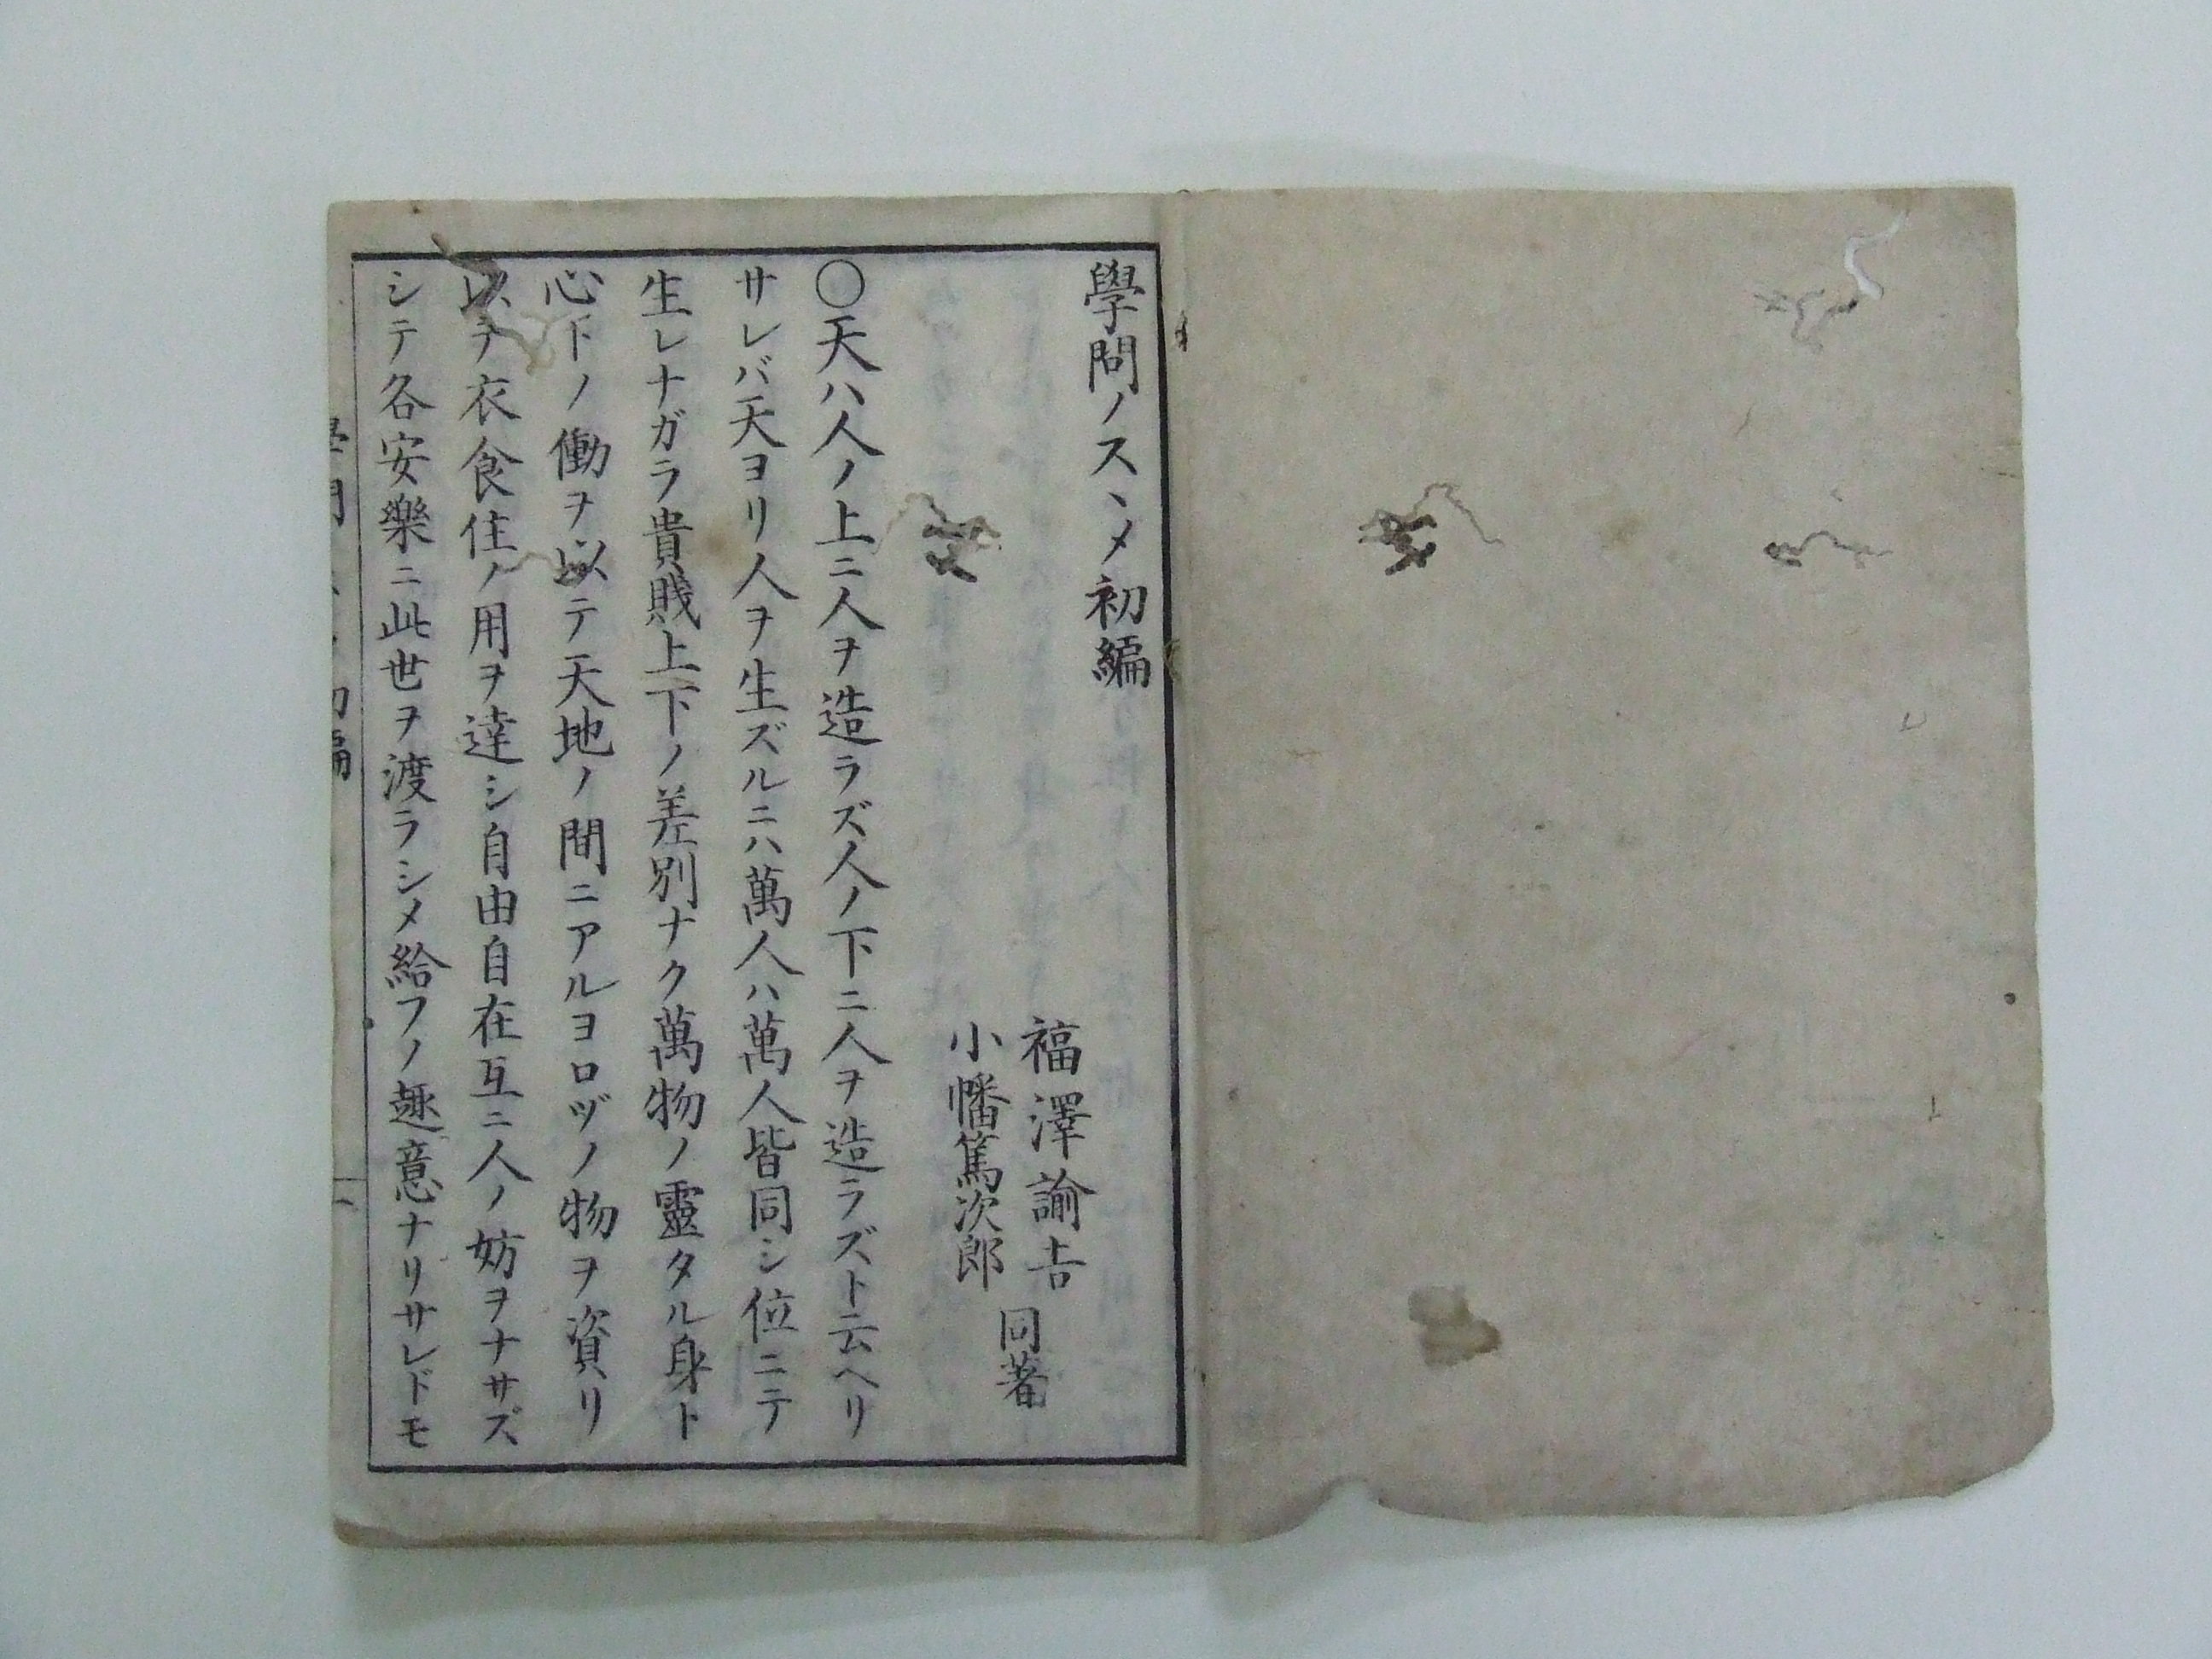 學問ノスヽメ初編
福澤諭吉
小幡篤次郎
同著
〇天ハ人ノ上ニ人ヲ造ラズ人ノ下ニ人ヲ造ラズト云ヘリ
サレバ天ヨリ人ヲ生ズルニハ萬人ハ萬人皆同シ位ニテ
生レナガラ貴賤上下ノ差別ナク萬物ノ靈タル身ト
心トノ働ヲ以テ天地ノ間ニアルヨロヅノ物ヲ資リ
以テ衣食住ノ用ヲ達シ自由自在互ニ人ノ妨ヲナサズ
シテ各安樂ニ此世ヲ渡ラシメ給フノ趣意ナリサレドモ